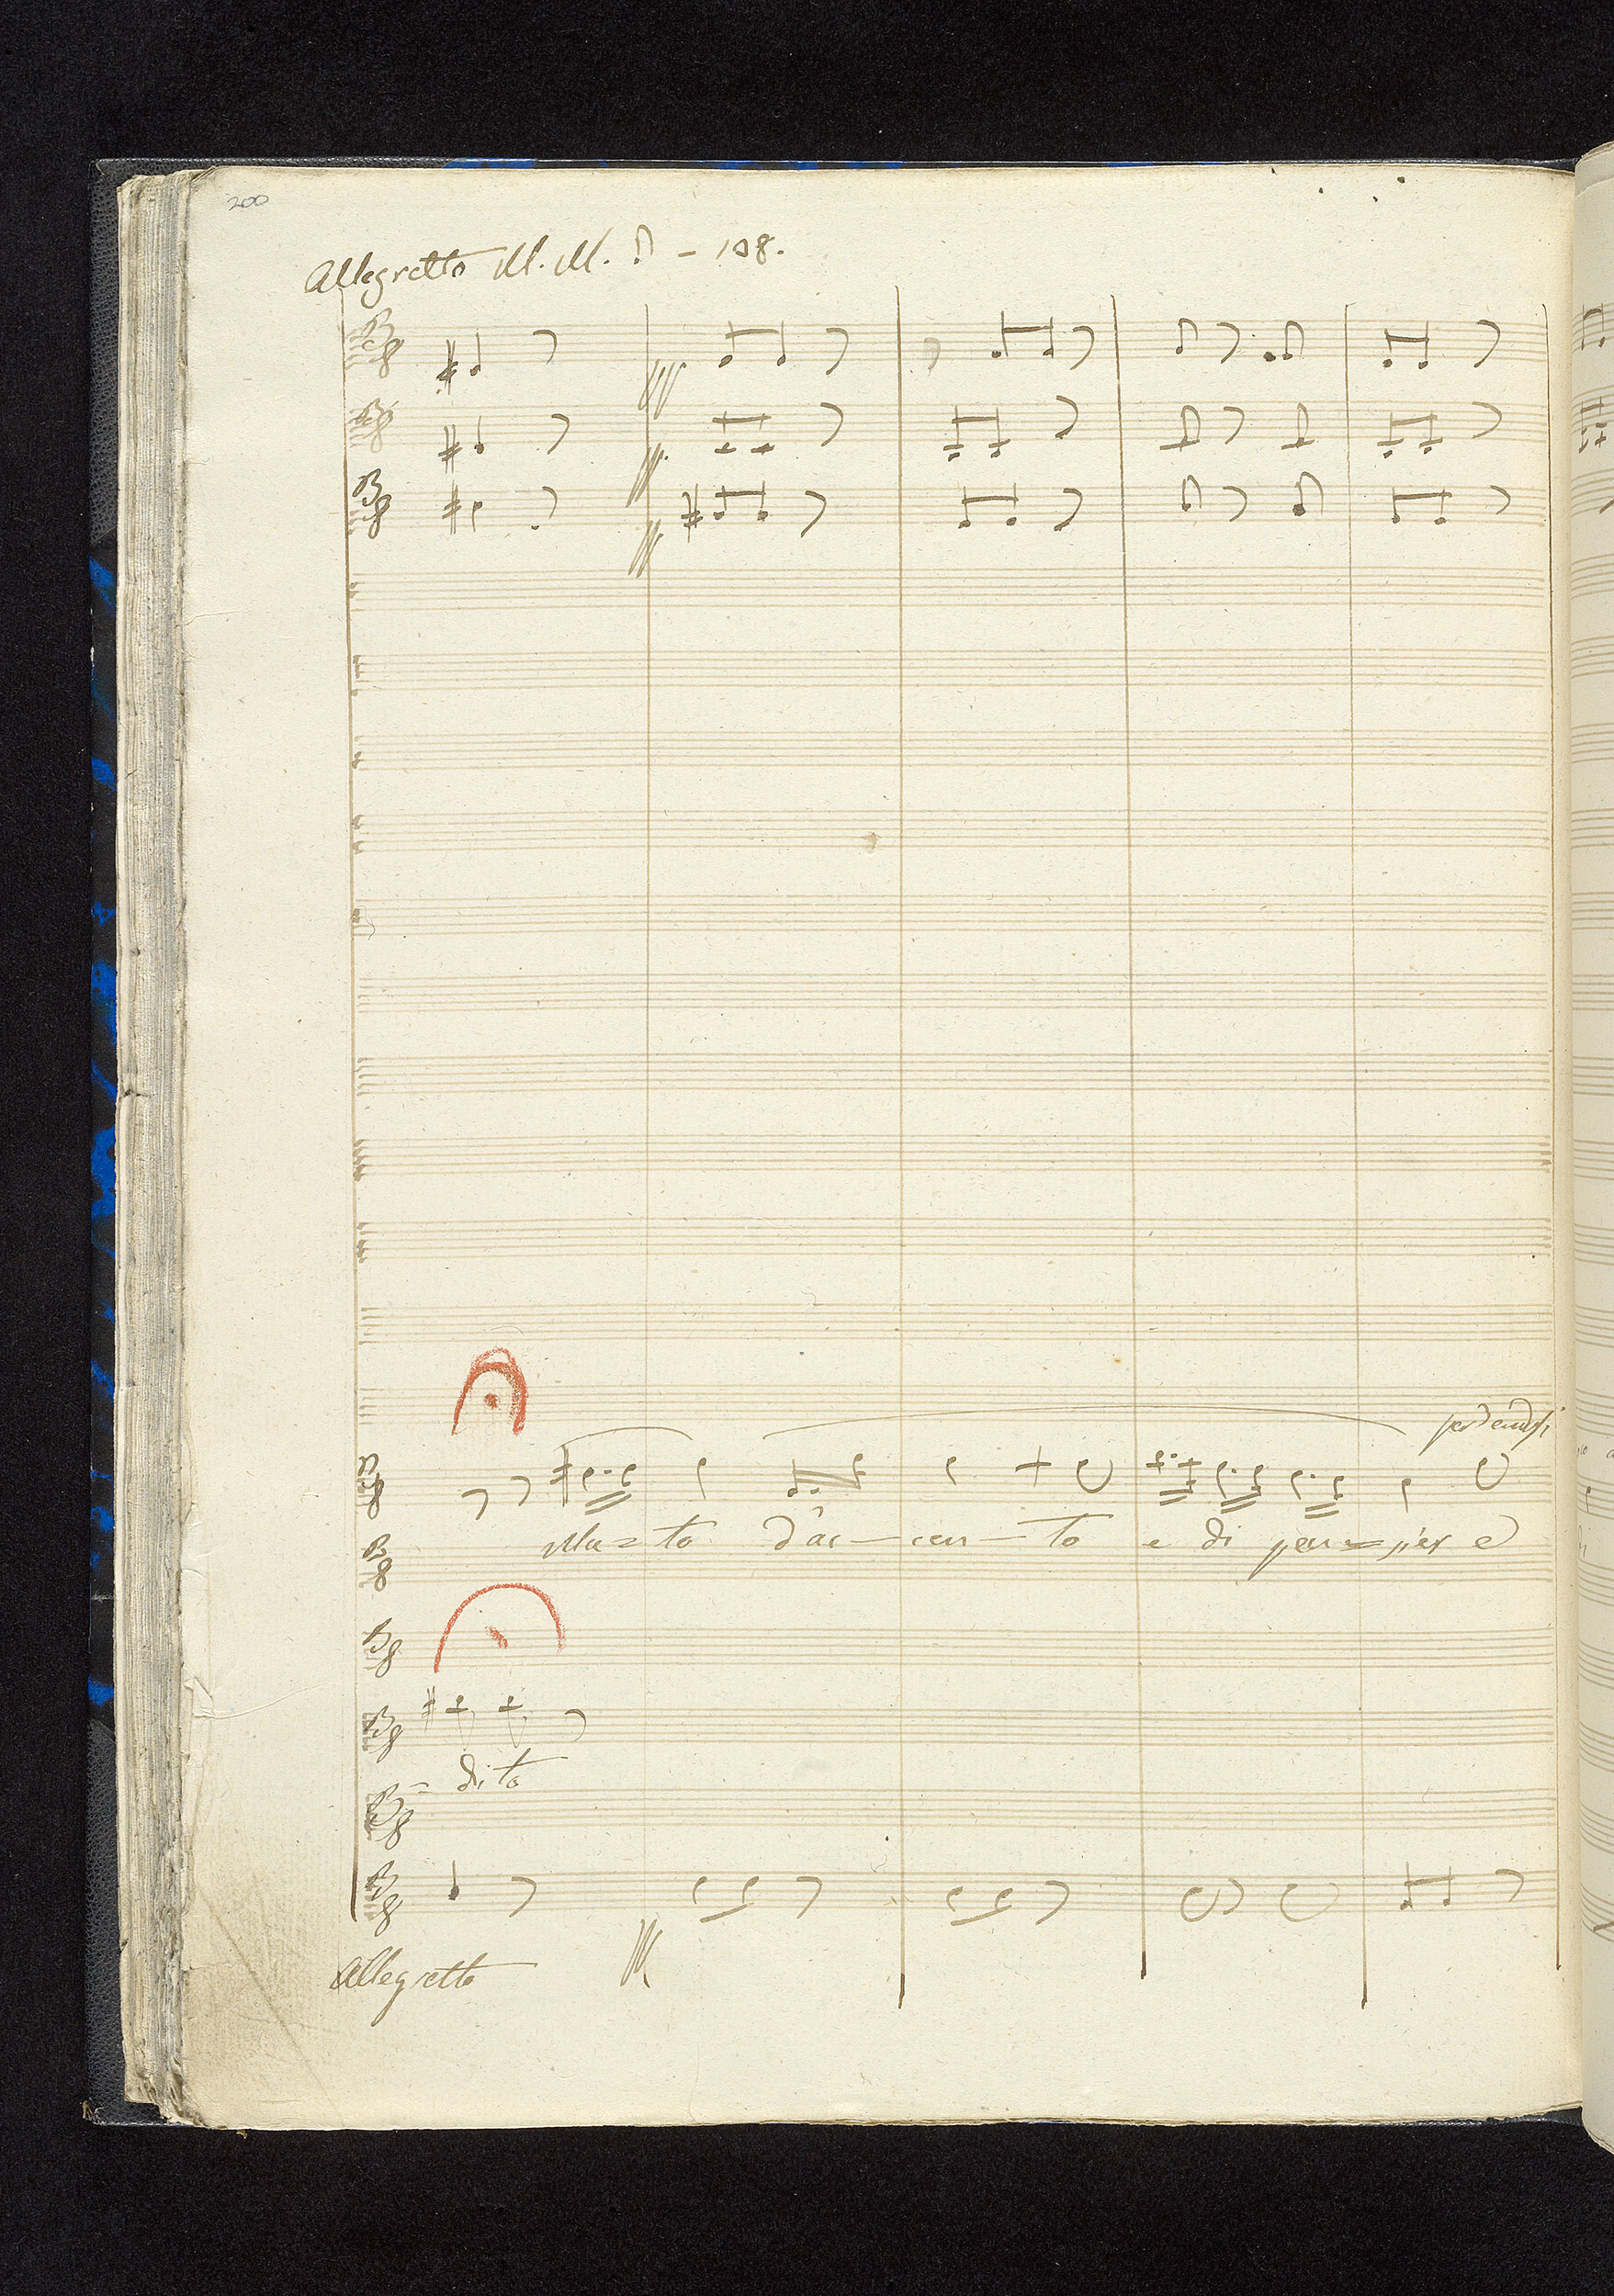 200
Allegretto M. M. ♪ - 108.
perdendosi
Mu=to d'ac-cen-to e di pen=sier e
= dito
Allegretto